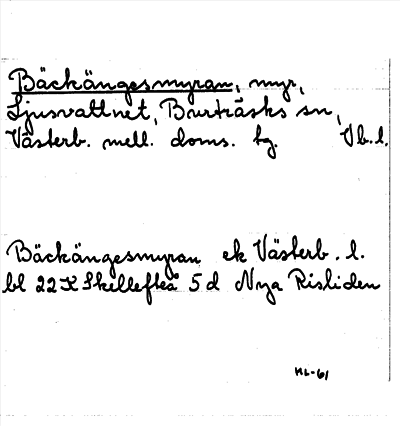 Bäckängesmyran, myr,
Ljusvattnet, Burträsks sn,
Västerb. mell. doms. tg. Vb.l.
Bäckängesmyran ek Västerb. l.
bl 22 K Skellefteå 5 d Nya Risliden
HL-61